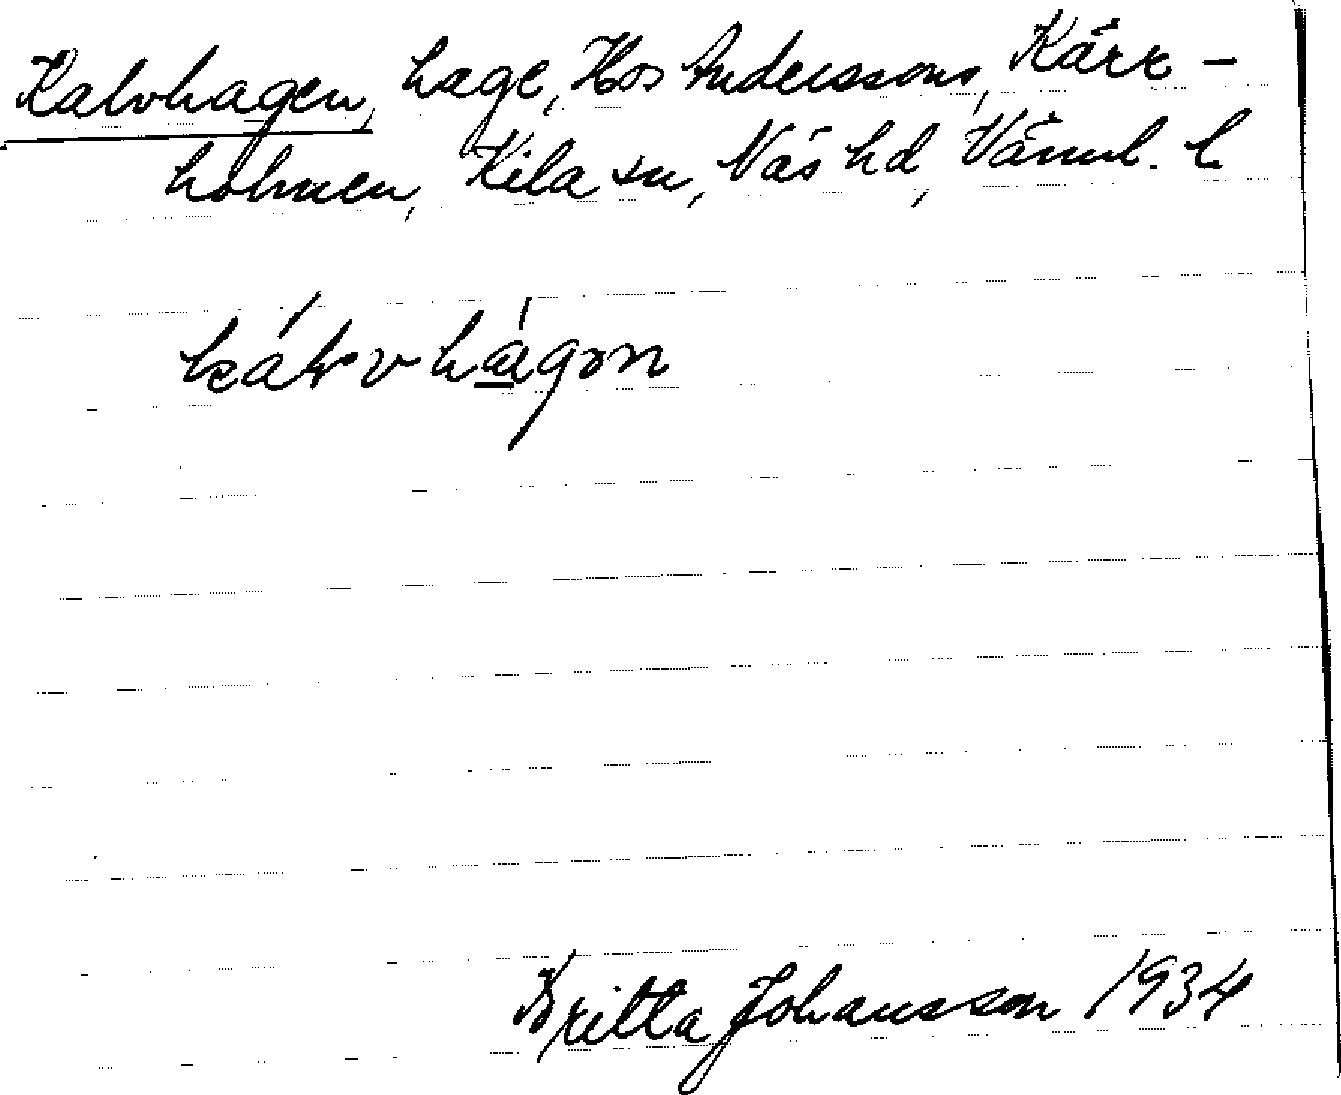 Kalvhagen, hage, Hos Anderssons, Kärr-
holmen, Kila sn, Näs hd, Värml. l.
Britta Johansson 1934